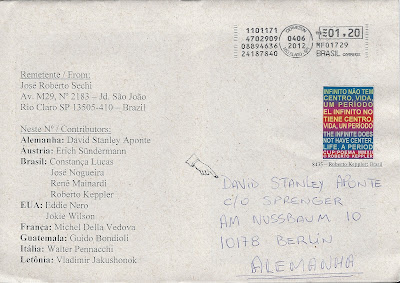 1101171
4702909
08894636
24187840
0406
2012
01.20
MF01729
BRASIL CORREIOS
Remetente / From:
José Roberto Sechi
Av. M29, Nº 2183 – Jd. São João
Rio Claro SP 13505-410 – Brazil
Neste Nº / Contributors:
Alemanha: David Stanley Aponte
Áustria: Erich Sündermann
Brasil: Constança Lucas
José Nogueira
René Mainardi
Roberto Keppler
EUA: Eddie Nero
Jokie Wilson
França: Michel Della Vedova
Guatemala: Guido Bondioli
Itália: Walter Pennacchi
Letônia: Vladimir Jakushonok
INFINITO NÃO TEM
CENTRO, VIDA,
UM PERÍODO
EL INFINITO NO
TIENE CENTRO,
VIDA, UN PERÍODO
THE INFINITE DOES
NOT HAVE CENTER,
LIFE, A PERIOD
CLIP-POEMA MMXII
© ROBERTO KEPPLER
Roberto Keppler/ Brasil
DAVID STANLEY APONTE
C/O SPRENGER
AM NUSSBAUM 10
10178. BERLÍN
ALEMANHA